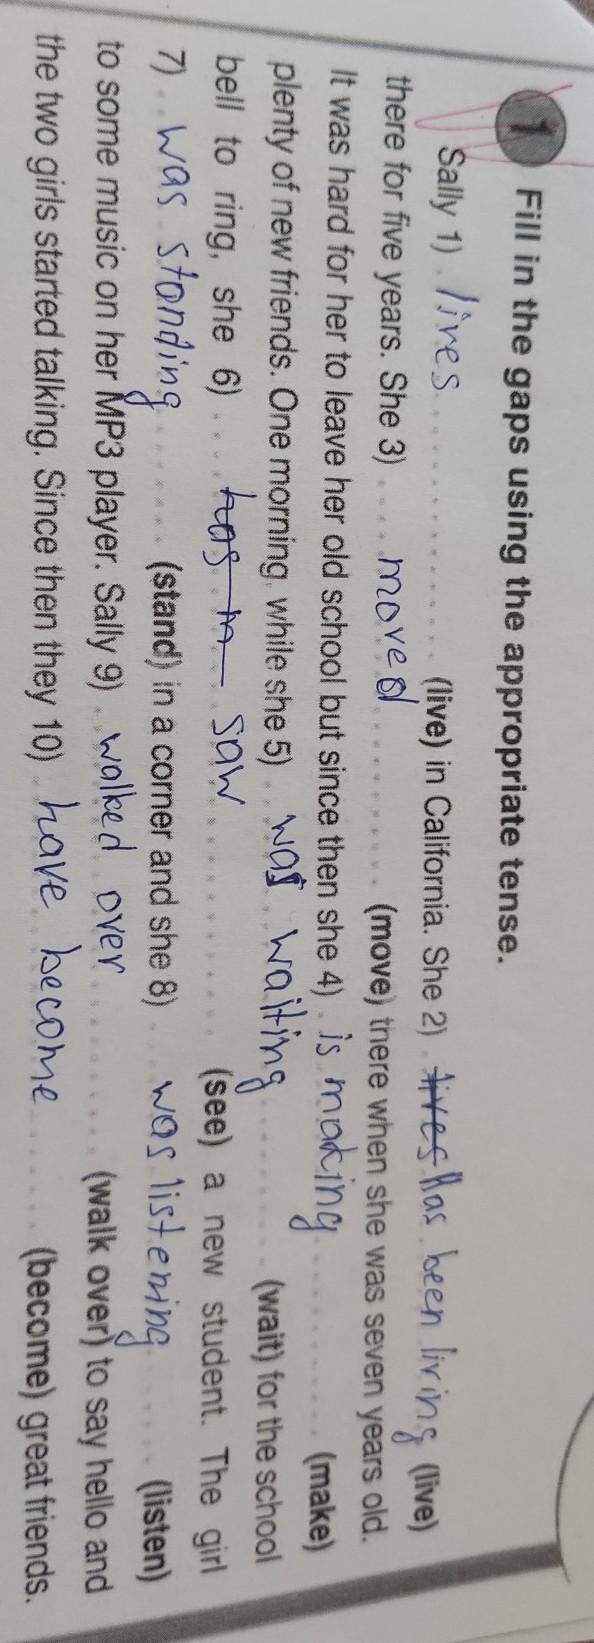 1 Fill in the gaps using the appropriate tense.
Sally 1) lives (live) in California. She 2) lives Has been living (live)
there for five years. She 3) moved (move) there when she was seven years old.
It was hard for her to leave her old school but since then she 4) is making (make)
plenty of new friends. One morning, while she 5) was waiting (wait) for the school
bell to ring, she 6) has saw (see) a new student. The girl
7) was standing (stand) in a corner and she 8) was listening (listen)
to some music on her MP3 player. Sally 9) walked over (walk over) to say hello and
the two girls started talking. Since then they 10) have become (become) great friends.